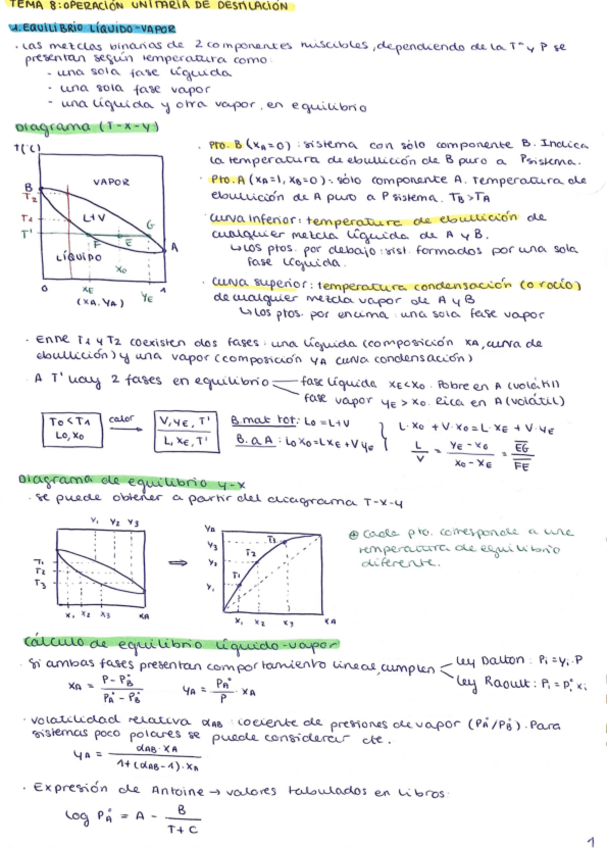 TEMA 8: OPERACIÓN UNITARIA DE DESTILACIÓN
1. EQUILIBRIO LÍQUIDO-VAPOR
· Las mezclas binarias de 2 componentes miscibles, dependiendo de la Tª y P se
presentan según temperatura como:
- una sola fase líquida
- una sola fase vapor
- una líquida y otra vapor, en equilibrio
Diagrama (T-x-y)
T(ºC)
B
T2
T1
T'
VAPOR
L+V
G
F
E
A
LÍQUIDO
x0
0
xE
yE
1
(xA, yA)
· Pto. B (xA=0): sistema con sólo componente B. Indica
la temperatura de ebullición de B puro a Psistema.
· Pto. A (xA=1, xB=0): sólo componente A. Temperatura de
ebullición de A puro a P sistema. TB>TA
· Curva inferior: temperatura de ebullición de
cualquier mezcla líquida de A y B.
↳ Los ptos. por debajo: sist. formados por una sola
fase líquida.
· Curva superior: temperatura condensación (o rocío)
de cualquier mezcla vapor de A y B
↳ Los ptos. por encima: una sola fase vapor
· Entre T1 y T2 coexisten dos fases: una líquida (composición xA, curva de
ebullición) y una vapor (composición yA curva condensación)
· A T' hay 2 fases en equilibrio
fase líquida xE<x0. Pobre en A (volátil)
fase vapor yE>x0. Rica en A (volátil)
T0<T1
L0, x0
calor
V, yE, T'
L, xE, T'
B. mat tot: L0 = L+V
B. a A: L0x0 = LxE + VyE
L·x0 + V·x0 = L·xE + V·yE
L/V = (yE - x0)/(x0 - xE) = EG/FE
Diagrama de equilibrio y-x
· Se puede obtener a partir del diagrama T-x-y
y1 y2 y3
T1
T2
T3
x1 x2 x3 xA
⇒
yA
y3
y2
y1
T3
T2
T1
x1 x2 x3 xA
⊕ Cada pto. corresponde a una
temperatura de equilibrio
diferente.
Cálculo de equilibrio líquido-vapor
· Si ambas fases presentan comportamiento lineal, cumplen
Ley Dalton: Pi = yi·P
Ley Raoult: Pi = Pi°·xi
xA = (P - PB°)/(PA° - PB°)
yA = PA°/P · xA
· Volatilidad relativa αAB: cociente de presiones de vapor (PA°/PB°). Para
sistemas poco polares se puede considerar cte.
yA = αAB·xA / (1+(αAB-1)·xA)
· Expresión de Antoine → valores tabulados en libros:
log PA° = A - B/(T+C)
1